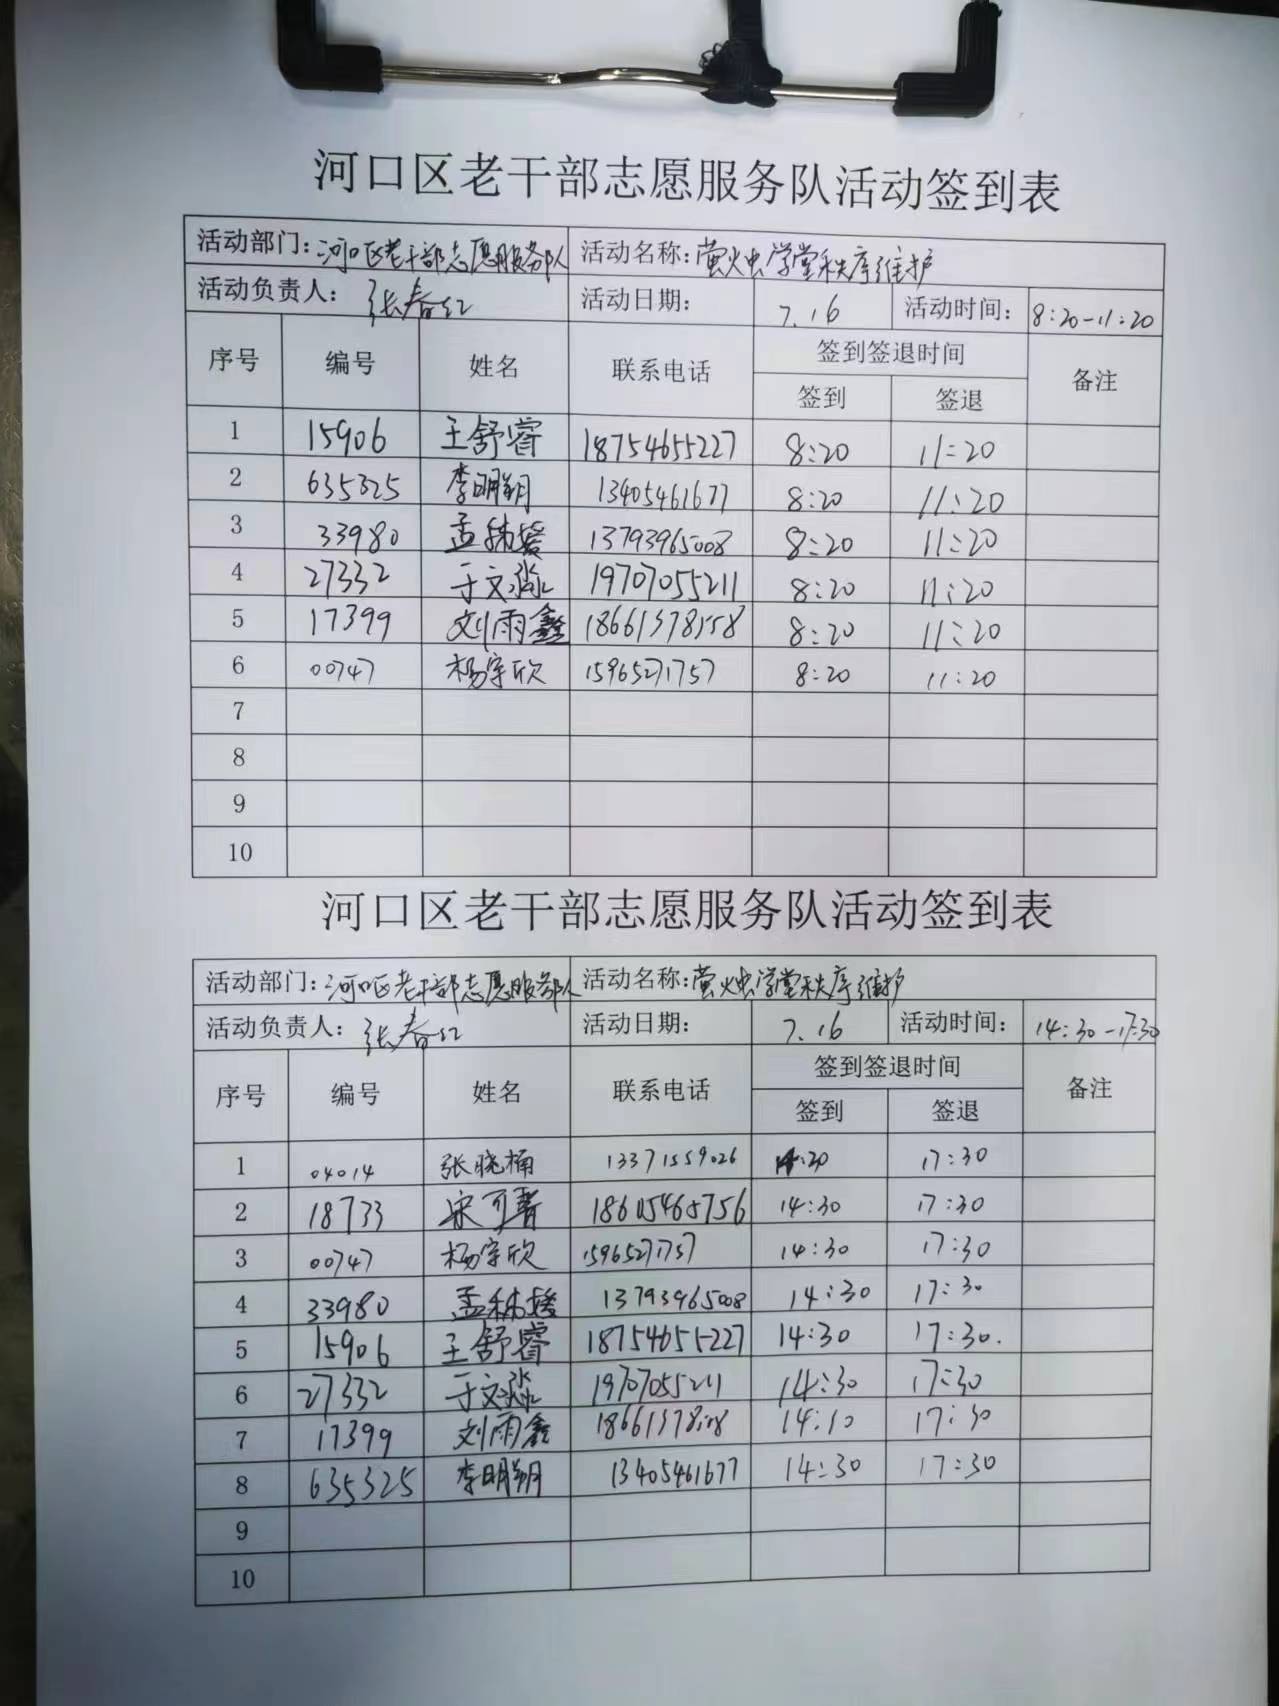 河口区老干部志愿服务队活动签到表
活动部门：河口区老干部志愿服务队 活动名称：萤火虫学堂秩序维护
活动负责人：张春红 活动日期： 7.16 活动时间： 8:20-11:20
序号 编号 姓名 联系电话 签到签退时间 备注
签到 签退
1 15906 王舒睿 18754655227 8:20 11:20
2 635325 李明玥 13405461677 8:20 11:20
3 33980 孟秭媛 13793965008 8:20 11:20
4 27332 于文淼 19707055211 8:20 11:20
5 17399 刘雨鑫 18661378158 8:20 11:20
6 00747 杨宇欣 15965271757 8:20 11:20
7
8
9
10
河口区老干部志愿服务队活动签到表
活动部门：河口区老干部志愿服务队 活动名称：萤火虫学堂秩序维护
活动负责人：张春红 活动日期： 7.16 活动时间： 14:30-17:30
序号 编号 姓名 联系电话 签到签退时间 备注
签到 签退
1 04014 张晓楠 13371559026 17:30
2 18733 宋可 18615465756 14:30 17:30
3 00747 杨宇欣 15965271757 14:30 17:30
4 33980 孟秭媛 13793965008 14:30 17:30
5 15906 王舒睿 18754655227 14:30 17:30.
6 27332 于文淼 19707055211 14:30 17:30
7 17399 刘雨鑫 14:30 17:30
8 635325 李明玥 13405461677 14:30 17:30
9
10